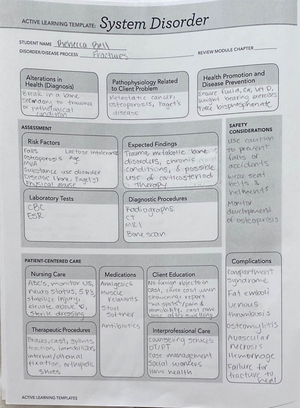 ACTIVE LEARNING TEMPLATE: System Disorder
STUDENT NAME Rebecca Bell
DISORDER/DISEASE PROCESS Fractures
REVIEW MODULE CHAPTER
Alterations in
Health (Diagnosis)
Break in a bone
secondary to trauma
or pathological
condition
Pathophysiology Related
to Client Problem
Metastatic cancer,
osteoporosis, Paget's
disease
Health Promotion and
Disease Prevention
Ensure fluid, Ca, Vit D,
weight bearing exercises
take bisphosphonate
ASSESSMENT
SAFETY
CONSIDERATIONS
Risk Factors
Falls Lactose intolerance
osteoporosis Age
MVA
Substance use disorder
Disease (bone, Paget's)
Physical abuse
Expected Findings
Trauma, metabolic bone
disorders, chronic
conditions, & possible
use of corticosteroid
therapy
Use caution
to prevent
falls or
accidents
wear seat
belts &
helmets
Monitor
development
of osteoporosis
Laboratory Tests
CBC
ESR
Diagnostic Procedures
Radiographs
CT
MRI
Bone scan
PATIENT-CENTERED CARE
Complications
Nursing Care
ABCs, monitor VS,
neuro status, SPS,
stabilize injury,
elevate above
sterile dressing
Medications
Analgesics
muscle
relaxants
Stool
softner
Antibiotics
Client Education
no foreign objects in
cast,
report
Compartment
Syndrome
Fat emboli
Venous
thrombosis
osteomyelitis
Avascular
necrosis
Hemorrhage
Failure for
fracture to
heal
Therapeutic Procedures
casts, splints,
traction,
internal/external
fixation, orthopedic
shoes
Interprofessional Care
counseling services
OT/PT
case management
Social workers
home health
ACTIVE LEARNING TEMPLATES